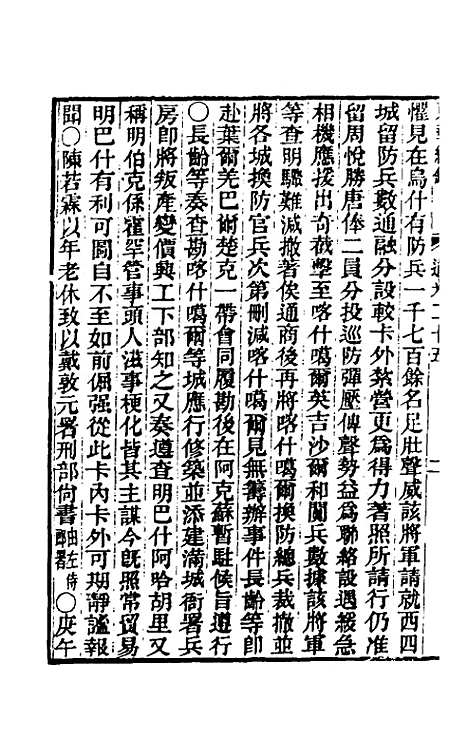 懼見在烏什有防兵一千七百餘名足壯聲威該將軍請就西四
城留防兵數通融分設較卡外紮營更爲得力著照所請行仍准
留周悅勝唐俸二員分投巡防彈壓俾聲勢益爲聯絡設遇緩急
相機應援出奇截擊至喀什噶爾英吉沙爾和闐兵數據該將軍
等查明驟難減撤著俟通商後再將喀什噶爾換防總兵裁撤並
將各城換防官兵次第刪減喀什噶爾見無籌辦事件長齡等卽
赴葉爾羌巴爾楚克一帶會同履勘後在阿克蘇暫駐候旨遵行
○長齡等奏查勘喀什噶爾等城應行修築並添建滿城衙署兵
房卽將叛產變價興工下部知之又奏遵查明巴什阿哈胡里又
稱明伯克係霍罕管事頭人滋事梗化皆其主謀今旣照常貿易
明巴什有利可圖自不至如前倔强從此卡內卡外可期靜謐報
聞○陳若霖以年老休致以戴敦元署刑部尙書由左侍郎署○庚午